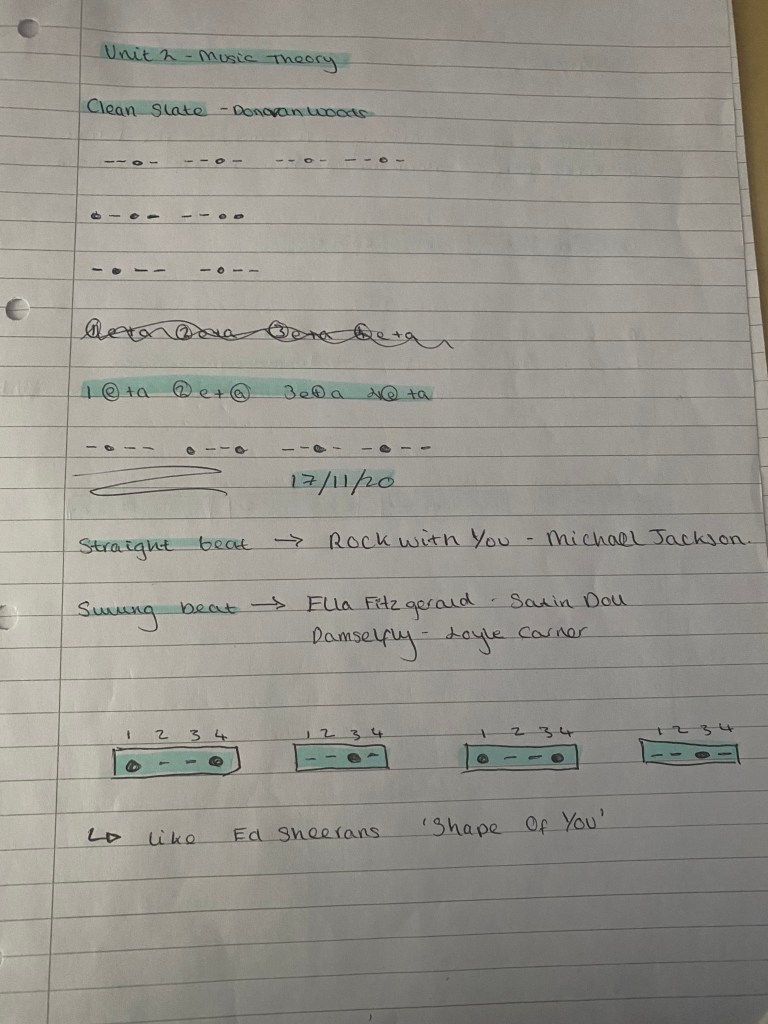 Unit 2 - Music Theory
Clean Slate - Donovan Woods
--o- --o- --o- --o-
o-o- --oo
-o-- -o--
1 ⓔ + a ② e + ⓐ 3 e ⊕ a 4 ⓔ + a
-o-- o--o --o- -o--
17/11/20
Straight beat → Rock with You - Michael Jackson.
Swung beat → Ella Fitzgerald - Satin Doll
Damselfly - Loyle Carner
1 2 3 4 1 2 3 4 1 2 3 4 1 2 3 4
o--o --o- o--o --o-
↳ like Ed Sheerans 'Shape Of You'